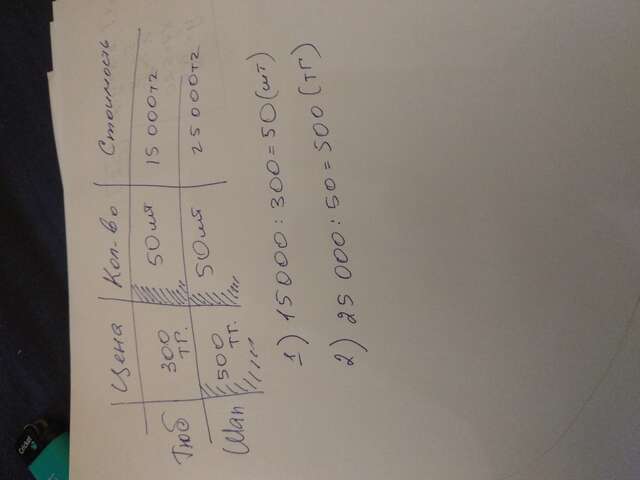 Цена Кол-во Стоимость
Тюб 300 тг. 50 шт 15 000 тг
Шап 500 тг. 50 шт 25 000 тг
1) 15000 : 300 = 50 (шт)
2) 25 000 : 50 = 500 (тг)
Cricket